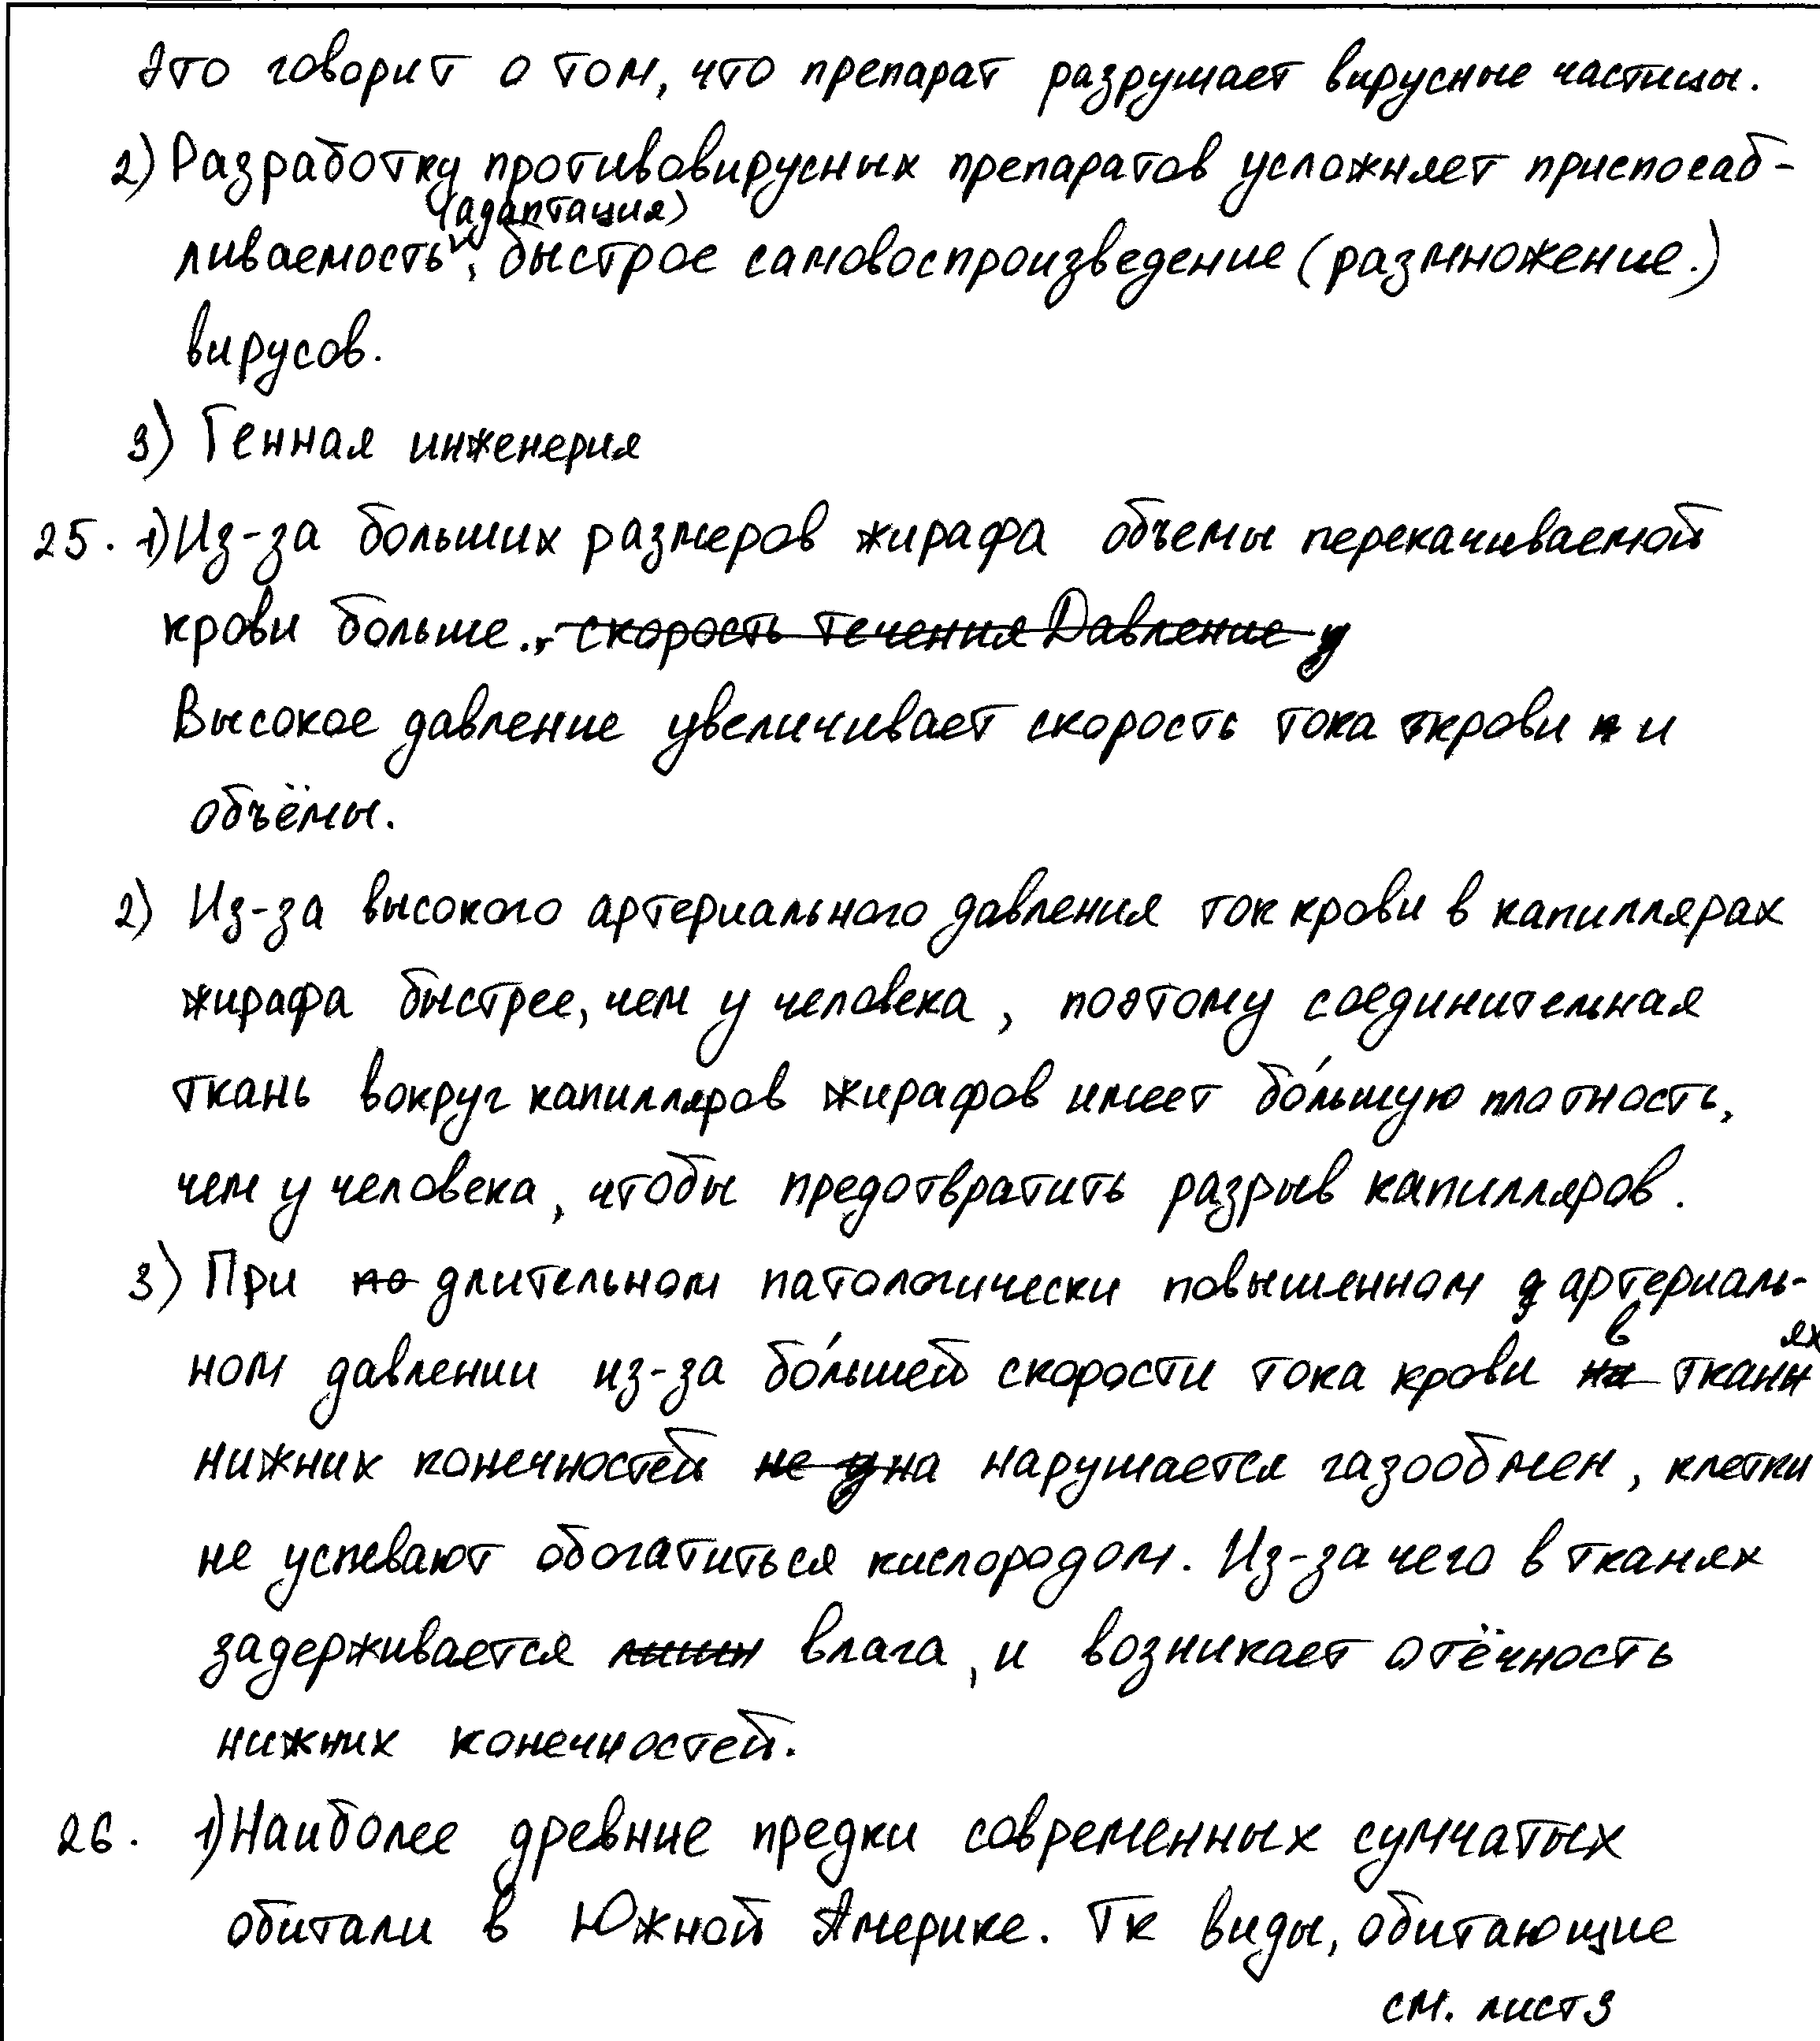 Это говорит о том, что препарат разрушает вирусные частицы.
2) Разработку противовирусных препаратов усложняет приспосаб-
ливаемость (адаптация), быстрое самовоспроизведение (размножение.)
вирусов.
3) Генная инженерия
25. 1) Из-за больших размеров жирафа объемы перекачиваемой
крови больше., скорость течения Давление у
Высокое давление увеличивает скорость тока крови и
объёмы.
2) Из-за высокого артериального давления ток крови в капиллярах
жирафа быстрее, чем у человека, поэтому соединительная
ткань вокруг капилляров жирафов имеет бо́льшую плотность,
чем у человека, чтобы предотвратить разрыв капилляров.
3) При по длительном патологически повышенном д артериаль-
ном давлении из-за бо́льшей скорости тока крови на в тканях
нижних конечностей не у на нарушается газообмен, клетки
не успевают обогатиться кислородом. Из-за чего в тканях
задерживается лишн влага, и возникает отёчность
нижних конечностей.
26. 1) Наиболее древние предки современных сумчатых
обитали в Южной Америке. Тк виды, обитающие
см. лист 3